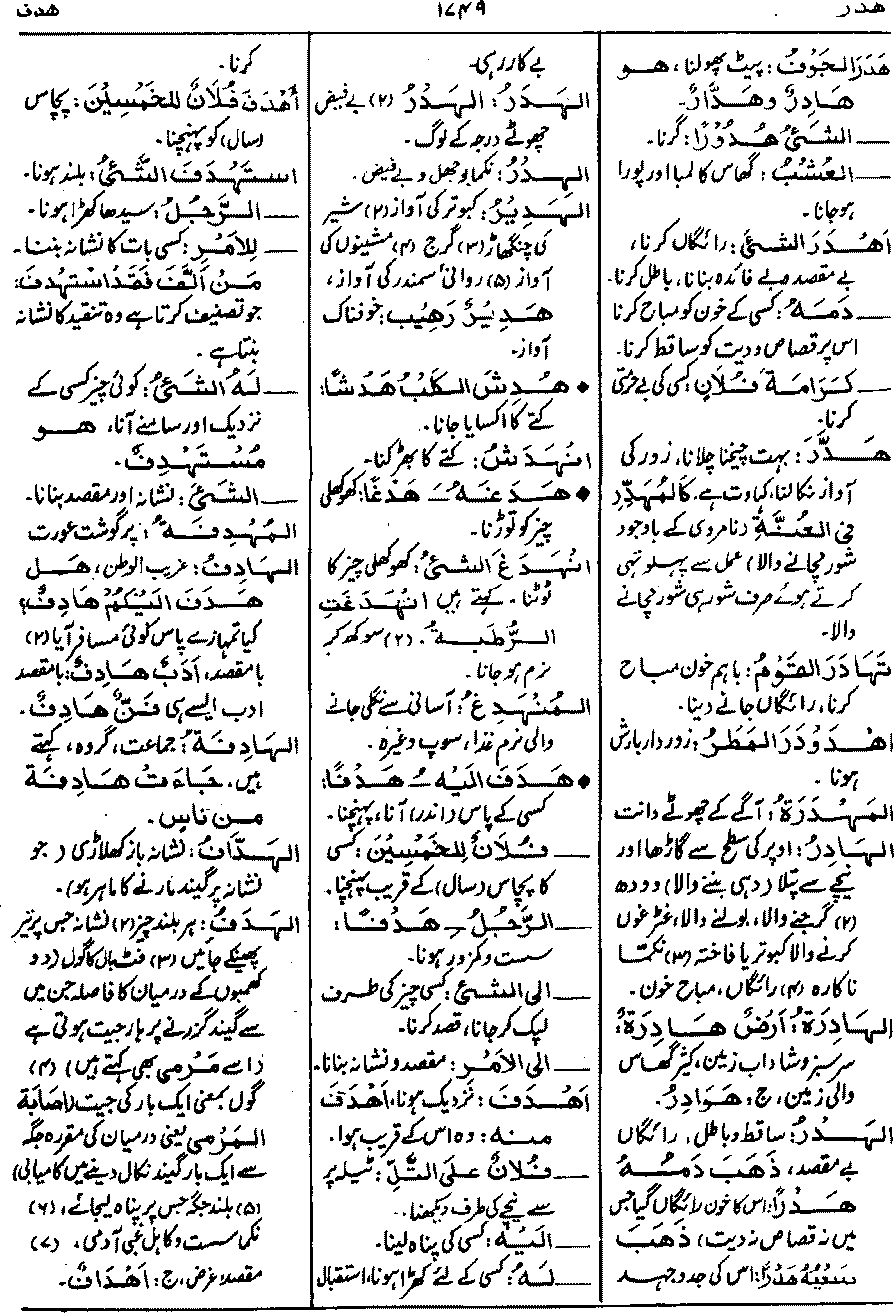 هدر
۱۷۴۹
هدف
هَدَرَ الجَوْفُ: پیٹ پھولنا، هـو
هَادِرٌ وهَدَّارٌ۔
ــــ الشَّئُ هُدُوْرًا: گرنا۔
ــــ العُشْبُ: گھاس کا لمبا اور پورا
ہوجانا۔
اَهْدَرَ الشَّئَ: رائگاں کرنا،
بے مقصد وبے فائدہ بنانا، باطل کرنا۔
ــــ دَمَهُ: کسی کے خون کو مباح کرنا
اس پر قصاص ودیت کو ساقط کرنا۔
ــــ كَرَامَةَ فُلَانٍ: کسی کی بے عزتی
کرنا۔
هَدَّرَ: بہت چیخنا چلانا، زور کی
آواز نکالنا، کہاوت ہے، كَالمُهَدِّرِ
فِي العُنَّةِ (نامردی کے باوجود
شور مچانے والا) عمل سے پہلو تہی
کرتے ہوئے صرف شور ہی شور مچانے
والا۔
تَهَادَرَ القَوْمُ: باہم خون مباح
کرنا، رائگاں جانے دینا۔
اهْدَوْدَرَ المَطَرُ: زور دار بارش
ہونا۔
المَهْدَرَةُ: آگے کے چھوٹے دانت
الهَادِرُ: اوپر کی سطح سے گاڑھا اور
نیچے سے پتلا (دہی بننے والا) دودھ
(۲) گرجنے والا، بولنے والا، غٹرغوں
کرنے والا کبوتر یا فاختہ (۳) نکمّا
ناکارہ (۴) رائگاں، مباح خون۔
الهَادِرَةُ: اَرْضٌ هَادِرَةٌ:
سرسبز وشاداب زمین، کثیر گھاس
والی زمین، ج: هَوَادِرُ۔
الهَدْرُ: ساقط وباطل، رائگاں
بے مقصد، ذَهَبَ دَمُهُ
هَدْرًا: اس کا خون رائگاں گیا جس
میں نہ قصاص نہ دیت) ذَهَبَ
سَعْيُهُ هَدْرًا: اس کی جدوجہد
بے کار رہی۔
الهَدَرُ: الهَدْرُ (۲) بے فیض
چھوٹے درجہ کے لوگ۔
الهِدْرُ: نکما بوجھل وبے فیض۔
الهَدِيْرُ: کبوتر کی آواز (۲) شیر
کی چنگھاڑ (۳) گرج (۴) مشینوں کی
آواز (۵) روانیٔ سمندر کی آواز،
هَدِيْرٌ رَهِيْبٌ: خوفناک
آواز۔
♦ هُدِشَ الكَلْبُ هَدْشًا:
کتے کا اکسایا جانا۔
انْهَدَشَ: کتے کا بھڑکنا۔
♦ هَدَغَهُ ـَ هَدْغًا: کھوکھلی
چیز کو توڑنا۔
انْهَدَغَ الشَّئُ: کھوکھلی چیز کا
ٹوٹنا۔ کہتے ہیں انْهَدَغَتِ
الرُّطَبَةُ. (۲) سوکھ کر
نرم ہوجانا۔
المُنْهَدِغُ: آسانی سے نگلی جانے
والی نرم غذا، سوپ وغیرہ۔
♦ هَدَفَ اليه ـُ هَدْفًا:
کسی کے پاس (اندر) آنا، پہنچنا۔
ــــ فُلَانٌ لِلخَمْسِيْنَ: کسی
کا پچاس (سال) کے قریب پہنچنا۔
ــــ الرَّجُلُ ـِ هَدْفًا:
سست وکمزور ہونا۔
ــــ الى الشَّئِ: کسی چیز کی طرف
لپک کر جانا، قصد کرنا۔
ــــ الى الاَمْرِ: مقصد ونشانہ بنانا۔
اَهْدَفَ: نزدیک ہونا، اَهْدَفَ
منه: وہ اس کے قریب ہوا۔
ــــ فُلَانٌ عَلَى التَّلِّ: ٹیلہ پر
سے نیچے کی طرف دیکھنا۔
ــــ الَيْهِ: کسی کی پناہ لینا۔
ــــ لَهُ: کسی کے لئے کھڑا ہونا، استقبال
کرنا۔
اَهْدَفَ فُلَانٌ لِلخَمْسِيْنَ: پچاس
(سال) کو پہنچنا۔
اسْتَهْدَفَ الشَّئُ: بلند ہونا۔
ــــ الرَّجُلُ: سیدھا کھڑا ہونا۔
ــــ لِلاَمْرِ: کسی بات کا نشانہ بننا۔
مَنْ اَلَّفَ فَقَدْ اسْتَهْدَفَ:
جو تصنیف کرتا ہے وہ تنقید کا نشانہ
بنتا ہے۔
ــــ لَهُ الشَّئُ: کوئی چیز کسی کے
نزدیک اور سامنے آنا، هـو
مُسْتَهْدِفٌ۔
ــــ الشَّئَ: نشانہ اور مقصد بنانا۔
المُهْدِفَةُ: پرگوشت عورت
الهَادِفُ: غریب الوطن، هَلْ
هَدَفَ اِلَيْكُمْ هَادِفٌ؟
کیا تمہارے پاس کوئی مسافر آیا (۲)
بامقصد، اَدَبٌ هَادِفٌ: بامقصد
ادب ایسے ہی فَنٌّ هَادِفٌ۔
الهَادِفَةُ: جماعت، گروہ، کہتے
ہیں، جَاءَتْ هَادِفَةٌ
مِن نَاسٍ.
الهَدَّافُ: نشانہ باز کھلاڑی (جو
نشانہ پر گیند مارنے کا ماہر ہو)۔
الهَدَفُ: ہر بلند چیز (۲) نشانہ جس پر تیر
پھینکے جائیں (۳) فٹبال کا گول (دو
کھمبوں کے درمیان کا فاصلہ جن میں
سے گیند گزرنے پر ہار جیت ہوتی ہے
(اسے مَرْمی بھی کہتے ہیں) (۴)
گول بمعنی ایک بار کی جیت (اصَابَة
المَرْمی یعنی درمیان کی مقررہ جگہ
سے ایک بار گیند نکال دینے میں کامیابی)
(۵) بلند جگہ جس پر پناہ لیجائے، (۶)
نکما سست وکاہل غبی آدمی، (۷)
مقصد، غرض، ج: اَهْدَافٌ۔